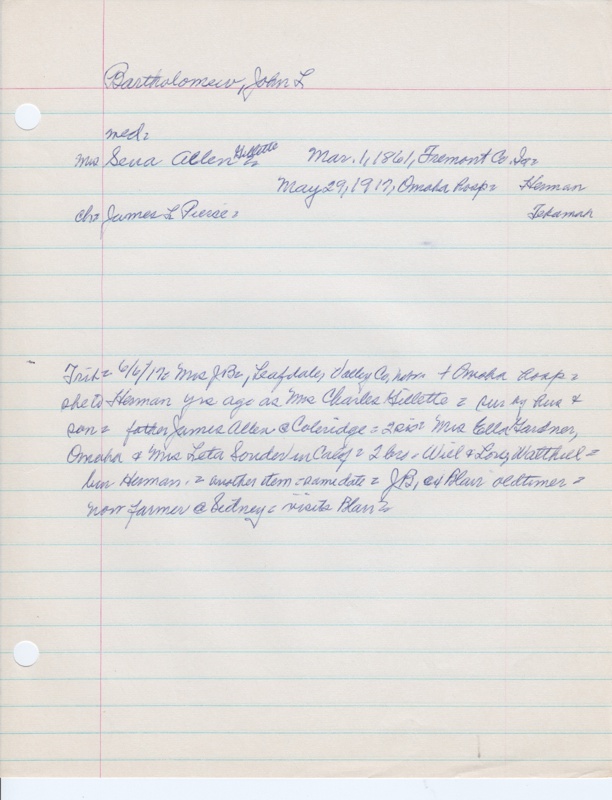 Bartholomew, John L
med=
Mrs Sena Allen Gillette = Mar. 1, 1861, Fremont Co. Ia=
May 29, 1917, Omaha hosp= Herman
ch= James L Pierce= Tekamah
Trib= 6/6/17= Mrs J.B., Leafdale, Valley Co, now + Omaha hosp=
she to Herman yrs ago as Mrs Charles Gillette = sur by hus &
son= father James Allen @ Coleridge = 2 sis= Mrs Ella Gardner,
Omaha & Mrs Leta Souder in Calif = 2 bro. Will & Loney, Walthill =
bur Herman. = another item = same date = J.B, ex Blair oldtimer =
now farmer @ Sidney = visits Blair =